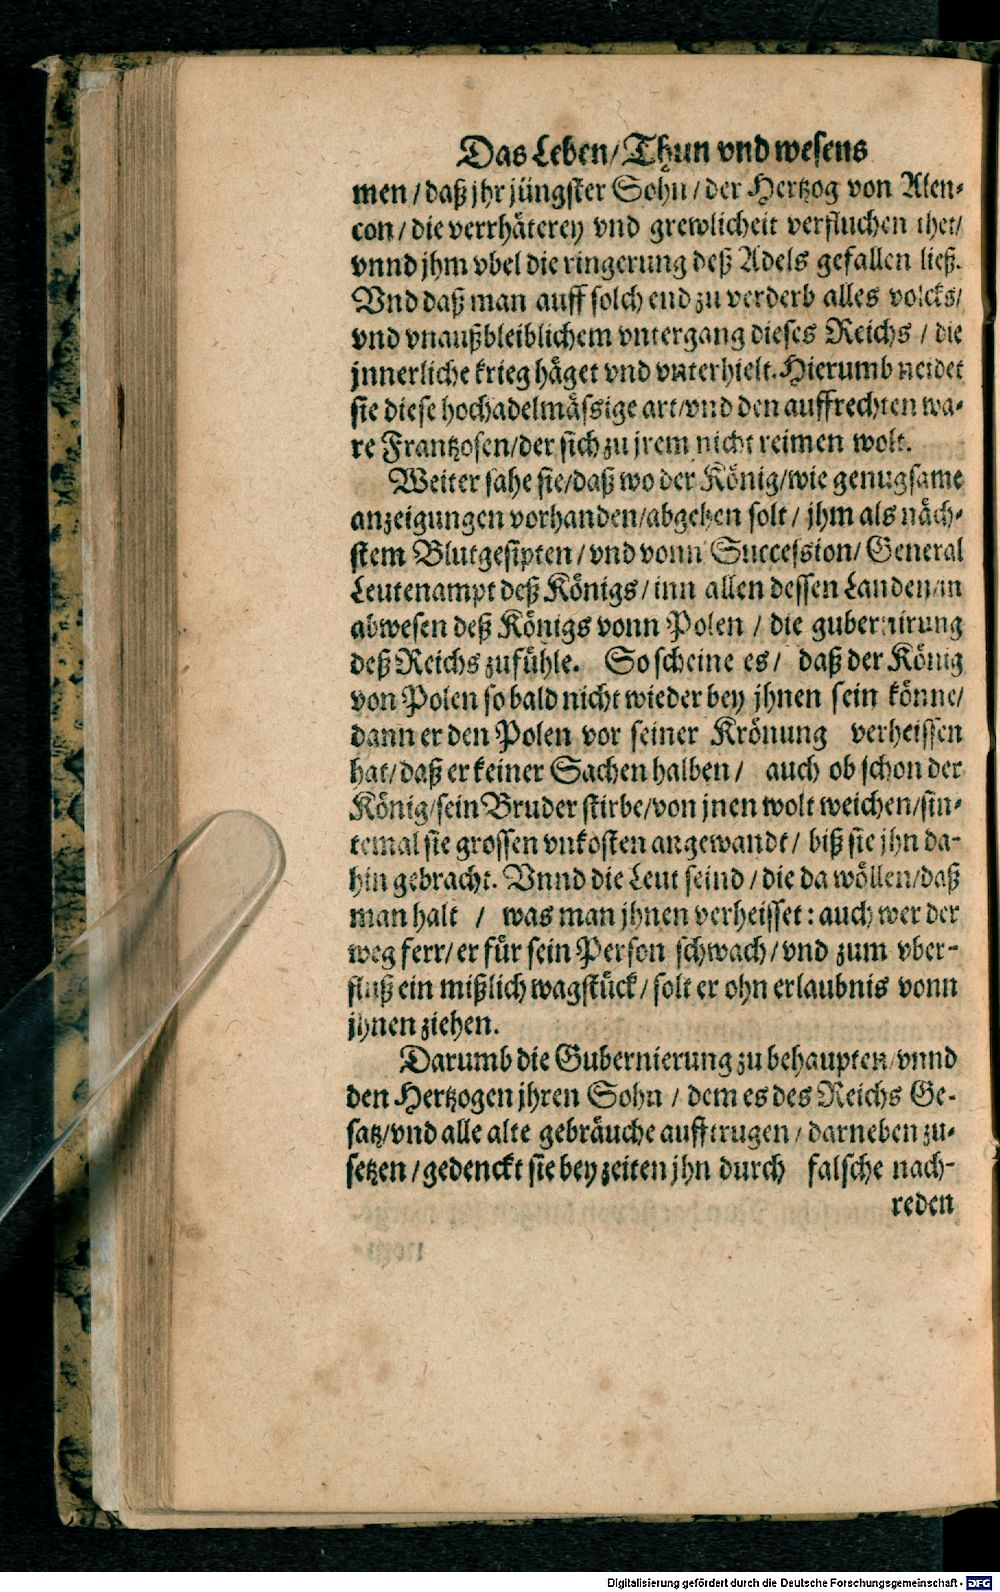 Das Leben/ Thun vnd wesens
men / daß jhr jüngster Sohn / der Hertzog von Alen-
con / die verrhäterey vnd grewlicheit verfluchen thet/
vnnd jhm vbel die ringerung deß Adels gefallen ließ.
Vnd daß man auff solch end zu verderb alles volcks/
vnd vnaußbleiblichem vntergang dieses Reichs / die
jnnerliche krieg häget vnd vnterhielt. Hierumb neidet
sie diese hochadelmässige art/ vnd den auffrechten wa-
re Frantzosen/ der sich zu jrem nicht reimen wolt.
Weiter sahe sie/ daß wo der König/ wie genugsame
anzeigungen vorhanden/ abgehen solt / jhm als näch-
stem Blutgesipten / vnd vonn Succession/ General
Leutenampt deß Königs / inn allen dessen Landen/ in
abwesen deß Königs vonn Polen / die gubernirung
deß Reichs zufühle. So scheine es / daß der König
von Polen so bald nicht wieder bey jhnen sein könne/
dann er den Polen vor seiner Krönung verheissen
hat/ daß er keiner Sachen halben / auch ob schon der
König/ sein Bruder stirbe/ von jnen wolt weichen/ sin-
temal sie grossen vnkosten angewandt / biß sie jhn da-
hin gebracht. Vnnd die Leut seind / die da wöllen/ daß
man halt / was man jhnen verheisset: auch wer der
weg ferr/ er für sein Person schwach / vnd zum vber-
fluß ein mißlich wagstück / solt er ohn erlaubnis vonn
jhnen ziehen.
Darumb die Gubernierung zu behaupten/ vnnd
den Hertzogen jhren Sohn / dem es des Reichs Ge-
satz/ vnd alle alte gebräuche aufftrugen / darneben zu-
setzen / gedenckt sie bey zeiten jhn durch falsche nach-
reden
Digitalisierung gefördert durch die Deutsche Forschungsgemeinschaft - DFG